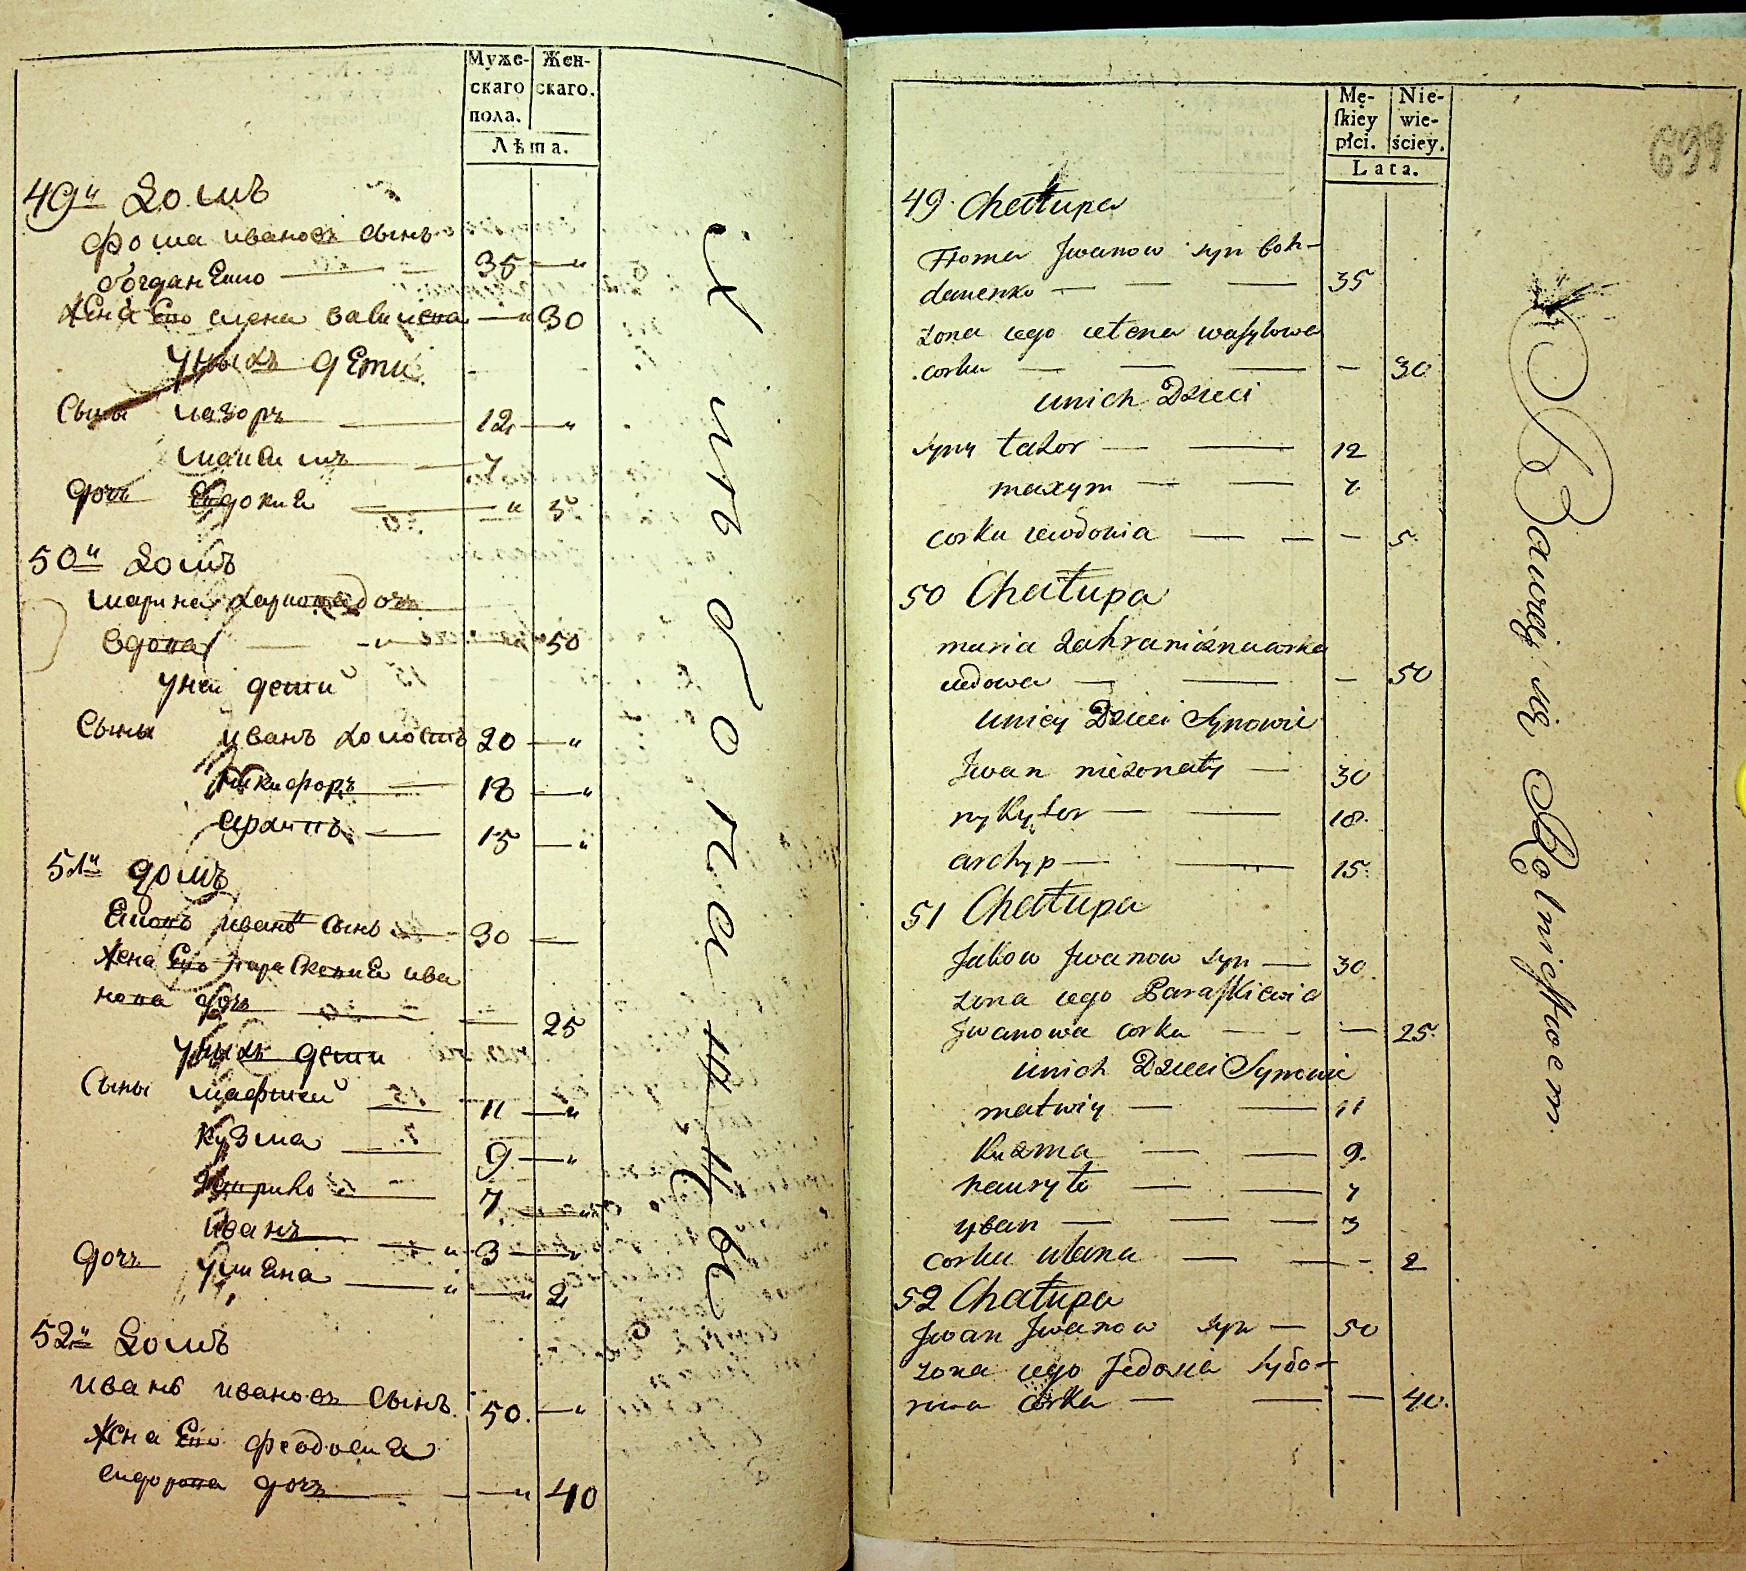 Муже-
скаго
пола.
Жен-
скаго.
Лѣта.
49й Домъ
Фома Ивановъ сынъ
Богданенко — 35 — "
Жена Его Елена Василева — " 30
У нихъ Дети
Сыны Лазоръ — 12 — "
Максимъ — 7
Дочь Евдокиа — " 5
50й Домъ
Марина дочь
вдова — " — 50
У ней дети
Сыны Иванъ холостъ 20 — "
Никифоръ — 18 — "
Архипъ — 15 — "
51й домъ
Иванъ Сынъ — 30 —
Жена Его Параскевиа Ива
нова дочь — 25
У нихъ дети
Сыны Матвей — 11 — "
Кузма — 9 — "
Гаврило — 7
Иванъ — " 3 — "
Дочь Улиена — " — " 2
52й Домъ
Иванъ Ивановъ Сынъ 50. — "
Жена Его Феодосиа
Сидорова дочь — — " 40
Хлѣбопашцы
Mę-
ſkiey
płci.
Nie-
wie-
ściey.
Lata.
699
49. Chałupa
Homa Jwanow syn Boh-
danenko — — — 35
zona iego Ulena Wasylowa
corka — — — — 30
unich Dzieci
syny Łazor — — 12
maxym — — 7
corka iewdonia — — — 5
50 Chałupa
maria corka
wdowa — — — 50
uniey Dzieci Synowie
Jwan niezonaty — 30
nykyfor — — 18.
archyp — — 15.
51 Chałupa
Jakow Jwanow syn — 30.
zona iego Paraſkiewia
Jwanowa corka — — — 25.
unich Dzieci Synowie
matwiy — — 11
Kuzma — — 9.
hawryło — — 7
yvan — — — 3
corka ulana — — - 2
52 Chałupa
Jwan Jwanow syn — 50
zona iego Fedosia Sydo-
rowa corka — — — 40.
Bawią się Rolnictwem